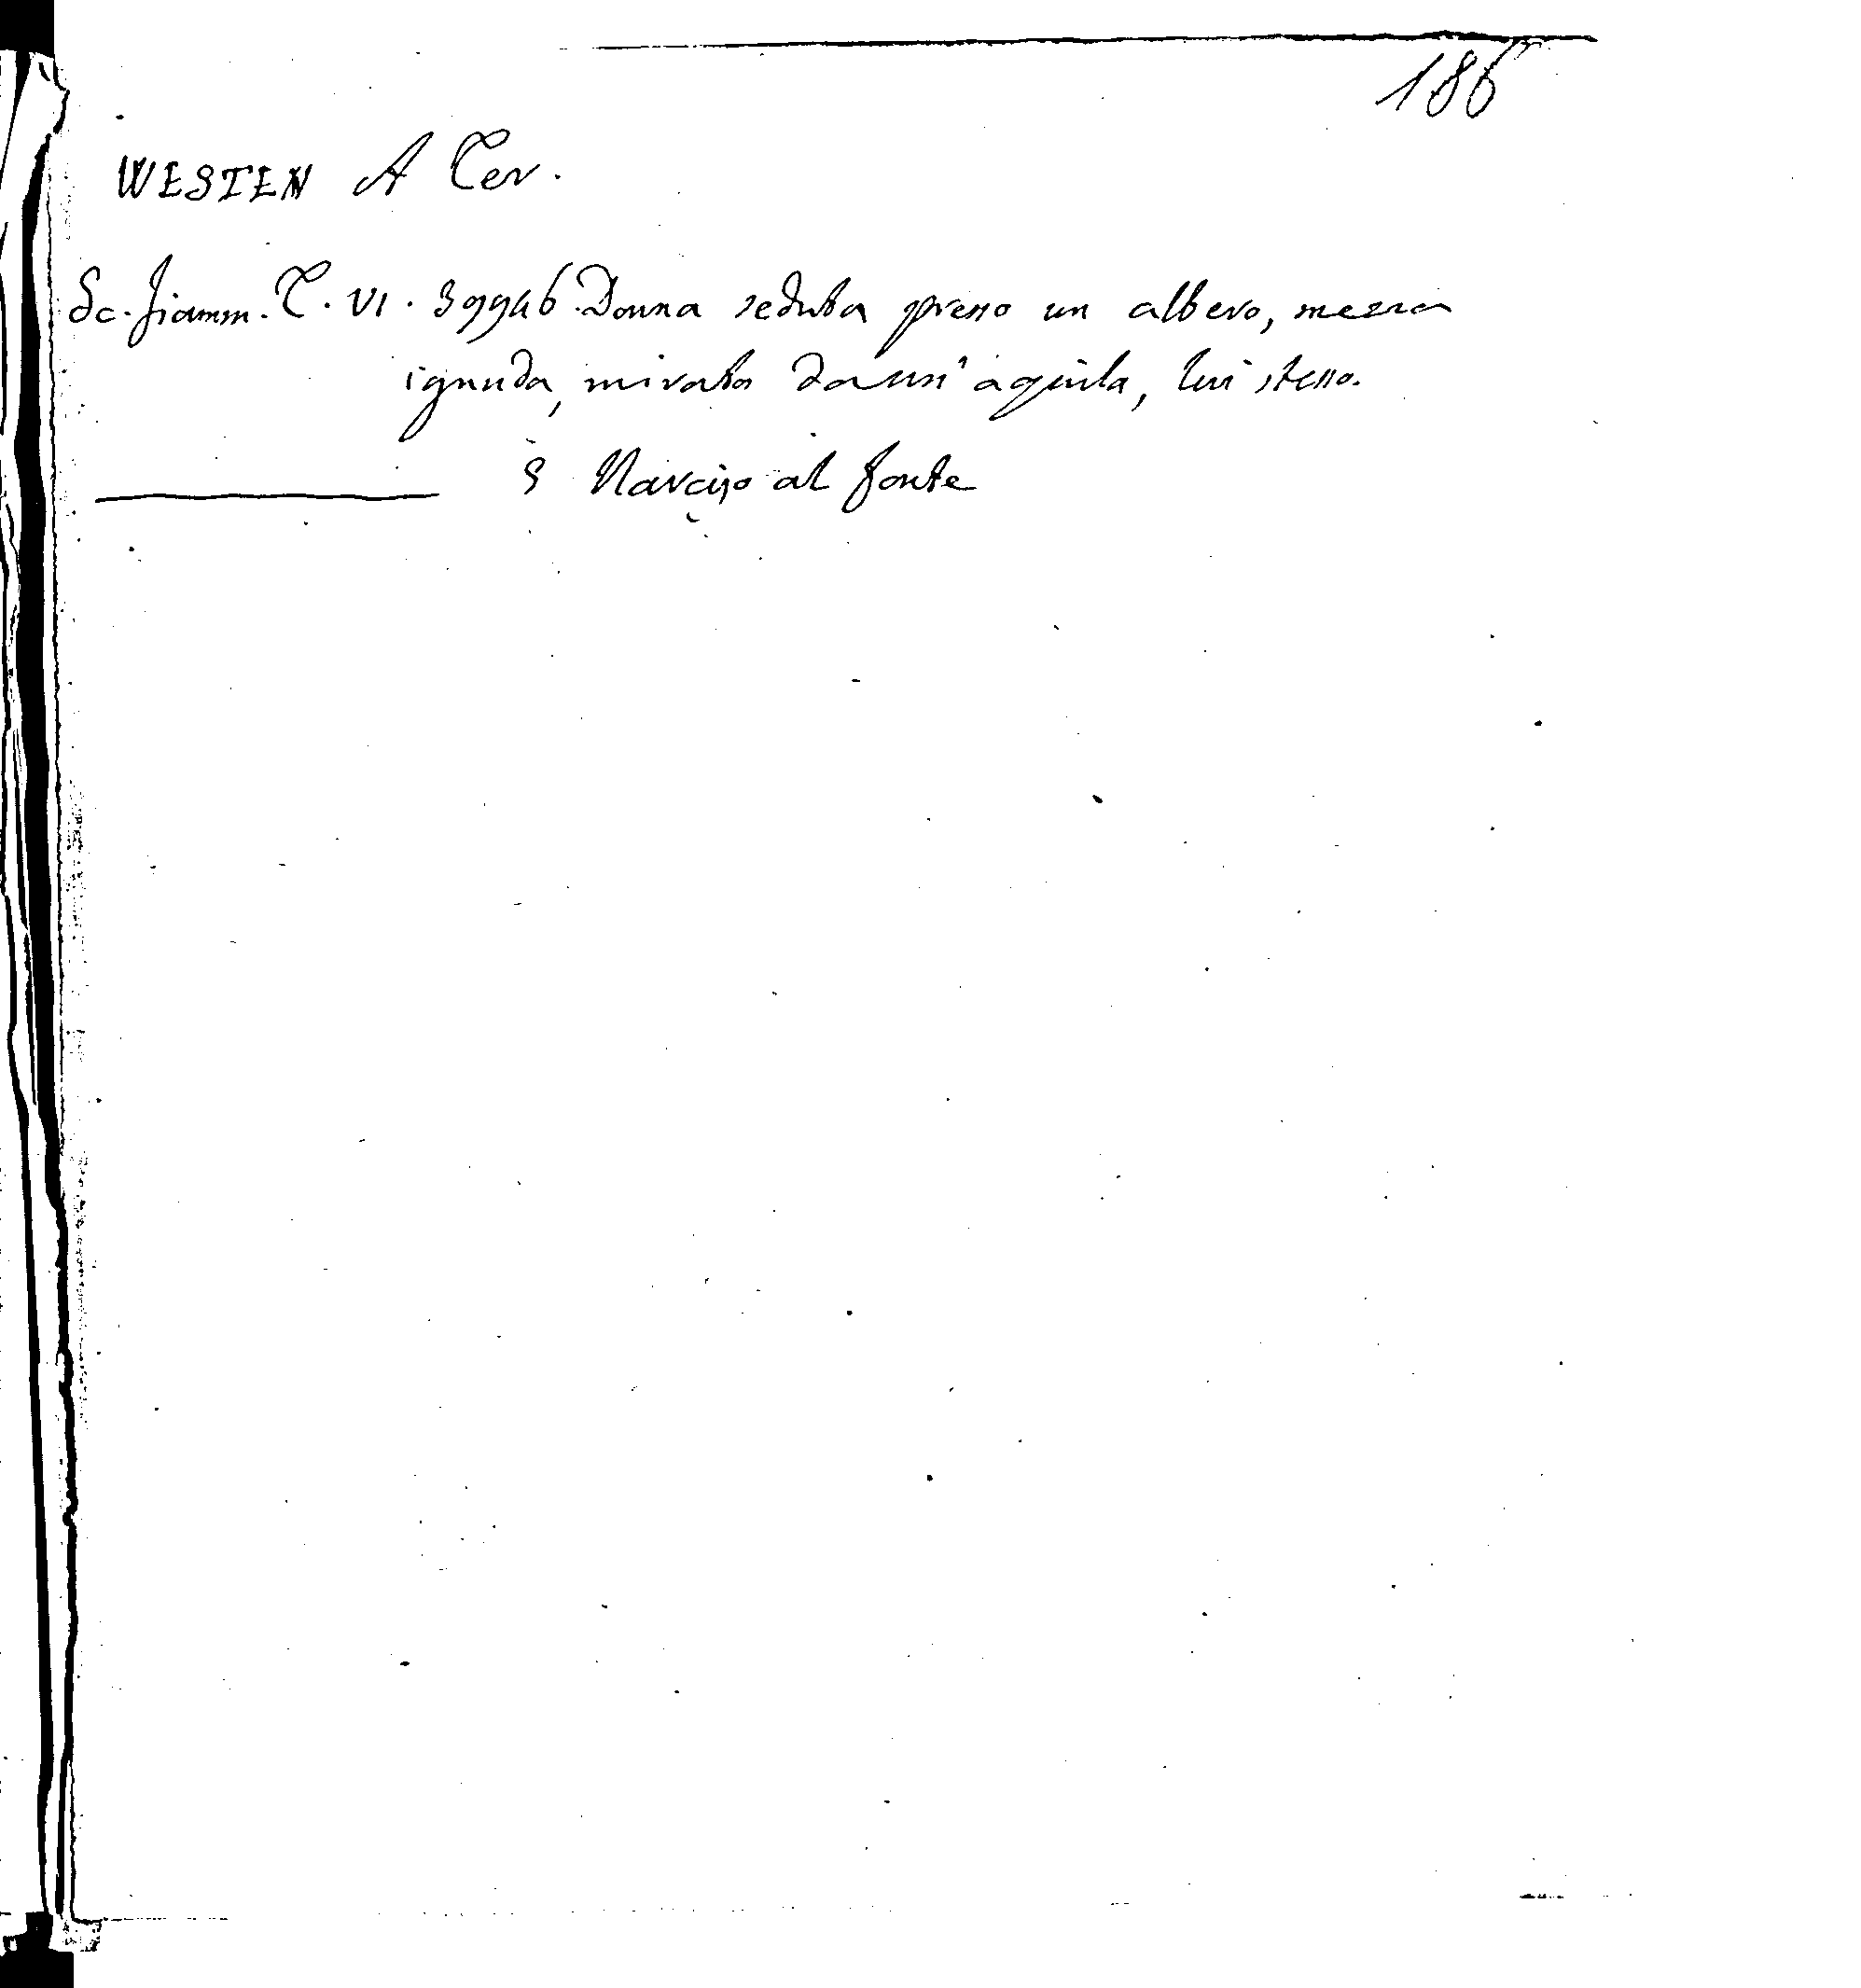 186
WESTEN A Ter.
Sc. fiamm. T. VI. 39946. Donna seduta presso un albero, mezza
ignuda, mirata da un' aquila, lui stesso.
5 Narciso al fonte